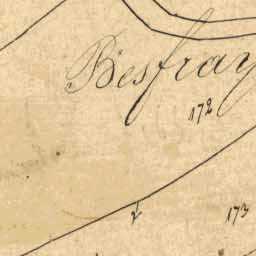 Besfray
172
173